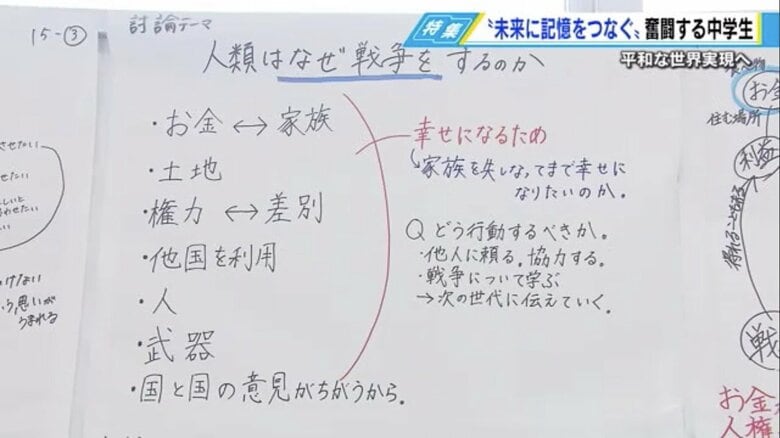 特集
"未来に記憶をつなぐ"奮闘する中学生
平和な世界実現へ
15-③
討論テーマ
人類はなぜ戦争をするのか
・お金↔家族
・土地
・権力↔差別
・他国を利用
・人
・武器
・国と国の意見がちがうから。
幸せになるため
↳家族を失しなってまで幸せに
なりたいのか。
Q どう行動するべきか。
・他人に頼る。協力する。
・戦争について学ぶ
→次の世代に伝えていく。
させたい
せたい
しいと
わせたい
けない
いう思いが
うまれる
お金
住む場所
利益
得れることもある
戦
お金
人権